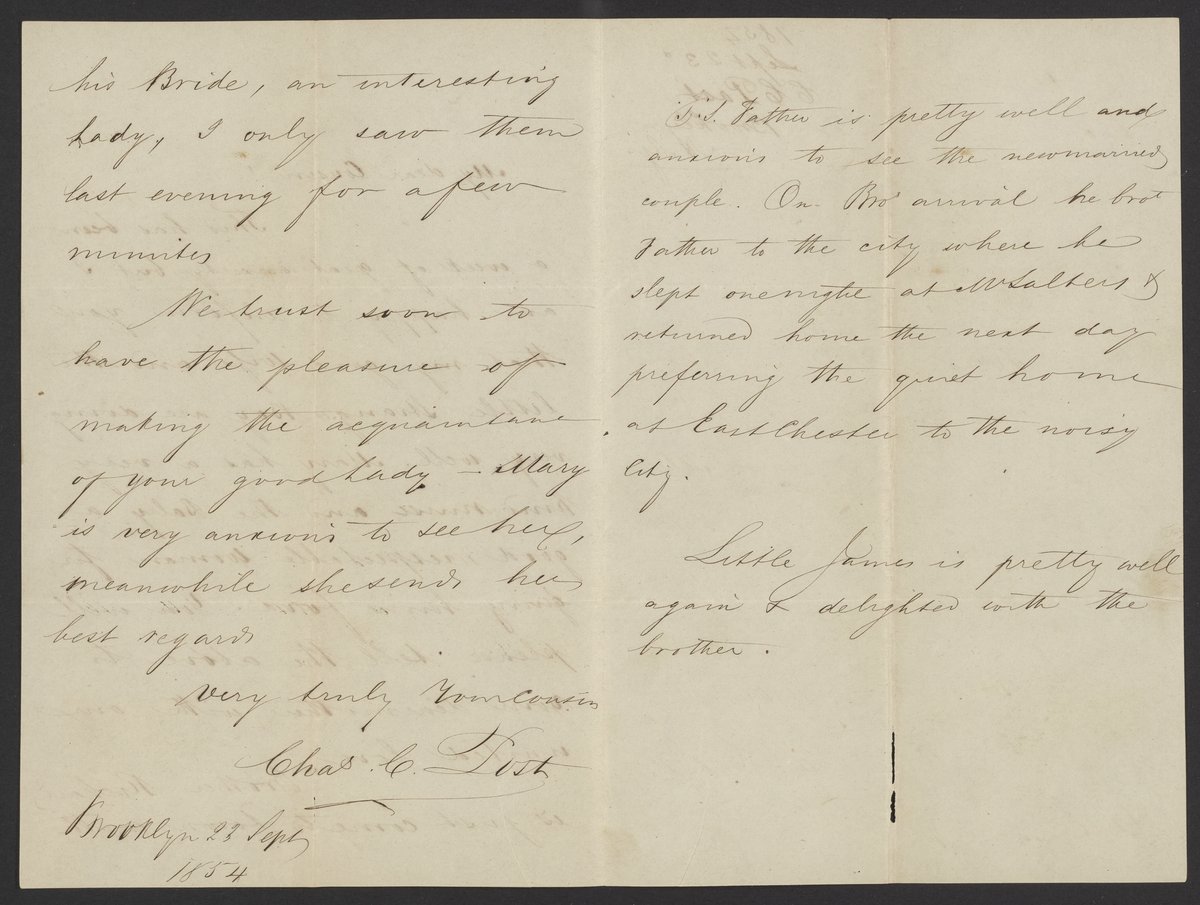 his Bride, an interesting
Lady, I only saw them
last evening for a few
minutes
We trust soon to
have the pleasure of
making the acquaintance
of your good Lady – Mary
is very anxious to see her,
meanwhile she sends her
best regards
very truly Your Cousin
Chas. C. Post
Brooklyn 23 Sept
1854
P.S. Father is pretty well and
anxious to see the newmarried
couple. On Bro' arrival he brot
Father to the city where he
slept one night at McSalters &
returned home the next day
preferring the quiet home
at East Chester to the noisy
City.
Little James is pretty well
again & delighted with the
brother.